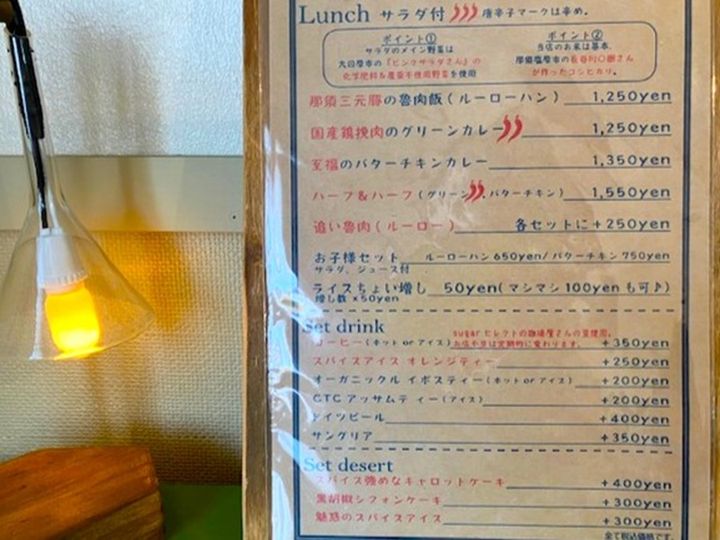 Lunch サラダ付 唐辛子マークは辛め。
ポイント①
サラダのメイン野菜は
大田原市の「ピンクサラダさん」の
化学肥料&農薬不使用野菜を使用
ポイント②
当店のお米は基本、
那須塩原市の
が作ったコシヒカリ。
那須三元豚の魯肉飯(ルーローハン) 1,250yen
国産鶏挽肉のグリーンカレー 1,250yen
至福のバターチキンカレー 1,350yen
ハーフ&ハーフ(グリーン、バターチキン) 1,550yen
追い魯肉(ルーロー) 各セットに+250yen
お子様セット ルーローハン650yen/バターチキン750yen
サラダ、ジュース付
ライスちょい増し 50yen(マシマシ100yenも可♪)
増し数×50yen
Set drink sugarセレクトの珈琲屋さんの豆使用。
お店や豆は定期的に変わります。
コーヒー(ホットorアイス) +350yen
スパイスアイス オレンジティー +250yen
オーガニックルイボスティー(ホットorアイス) +200yen
CTCアッサムティー(アイス) +200yen
ドイツビール +400yen
サングリア +350yen
Set desert
スパイス強めなキャロットケーキ +400yen
黒胡椒シフォンケーキ +300yen
魅惑のスパイスアイス +300yen
全て税込価格です。